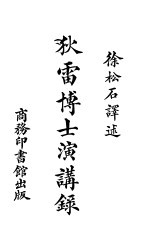 徐松石譯述
狄雷博士演講録
商務印書館出版